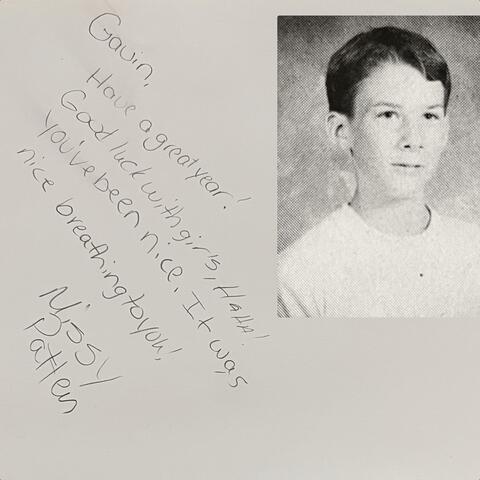 Gavin,
Have a great year!
Good luck with girls, HaHa!
You've been nice. It was
nice breathing to you!
Missy
Patten